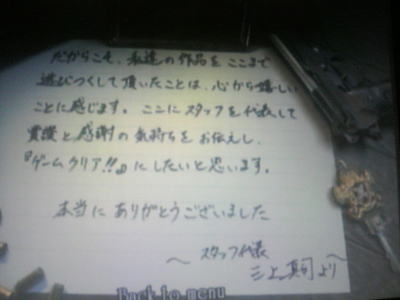 だからこそ、私達の作品をここまで
遊びつくして頂いたことは、心から嬉しい
ことに感じます。ここにスタッフを代表して
賞讃と感謝の気持ちをお伝えし、
『ゲームクリア!!』にしたいと思います。
本当にありがとうございました
〜スタッフ代表
三上真司より〜
Back to menu